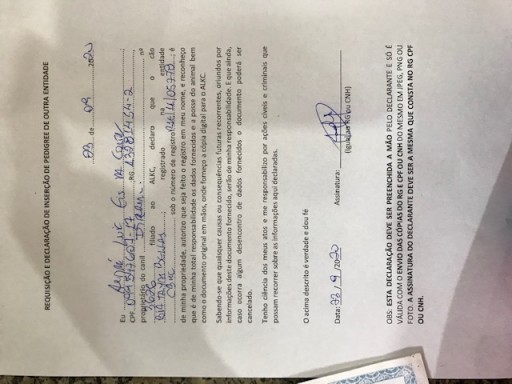 REQUISIÇÃO E DECLARAÇÃO DE INSERÇÃO DE PEDIGREE DE OUTRA ENTIDADE
de 09 2020
Eu
CPF RG
proprietário do canil nº
filiado ao ALKC, declaro que o cão
registrado na entidade
sob o número de registro é
de minha propriedade, autorizo que seja feito o registro em meu nome, e reconheço
que é de minha total responsabilidade os dados fornecidos e a posse do animal bem
como o documento original em mãos, onde forneço a cópia digital para o ALKC.
Sabendo-se que quaisquer causas ou consequências futuras recorrentes, oriundos por
informações deste documento fornecido, serão de minha responsabilidade. E que ainda,
caso ocorra algum desencontro de dados fornecidos o documento poderá ser
cancelado.
Tenho ciência dos meus atos e me responsabilizo por ações cíveis e criminais que
possam recorrer sobre as informações aqui declaradas.
O acima descrito é verdade e dou fé
Data: /9/2020 Assinatura:
(igual ao RG ou CNH)
OBS: ESTA DECLARAÇÃO DEVE SER PREENCHIDA A MÃO PELO DECLARANTE E SÓ É
VÁLIDA COM O ENVIO DAS CÓPIAS DO RG E CPF OU CNH DO MESMO EM JPEG, PNG OU
FOTO. A ASSINATURA DO DECLARANTE DEVE SER A MESMA QUE CONSTA NO RG CPF
OU CNH.